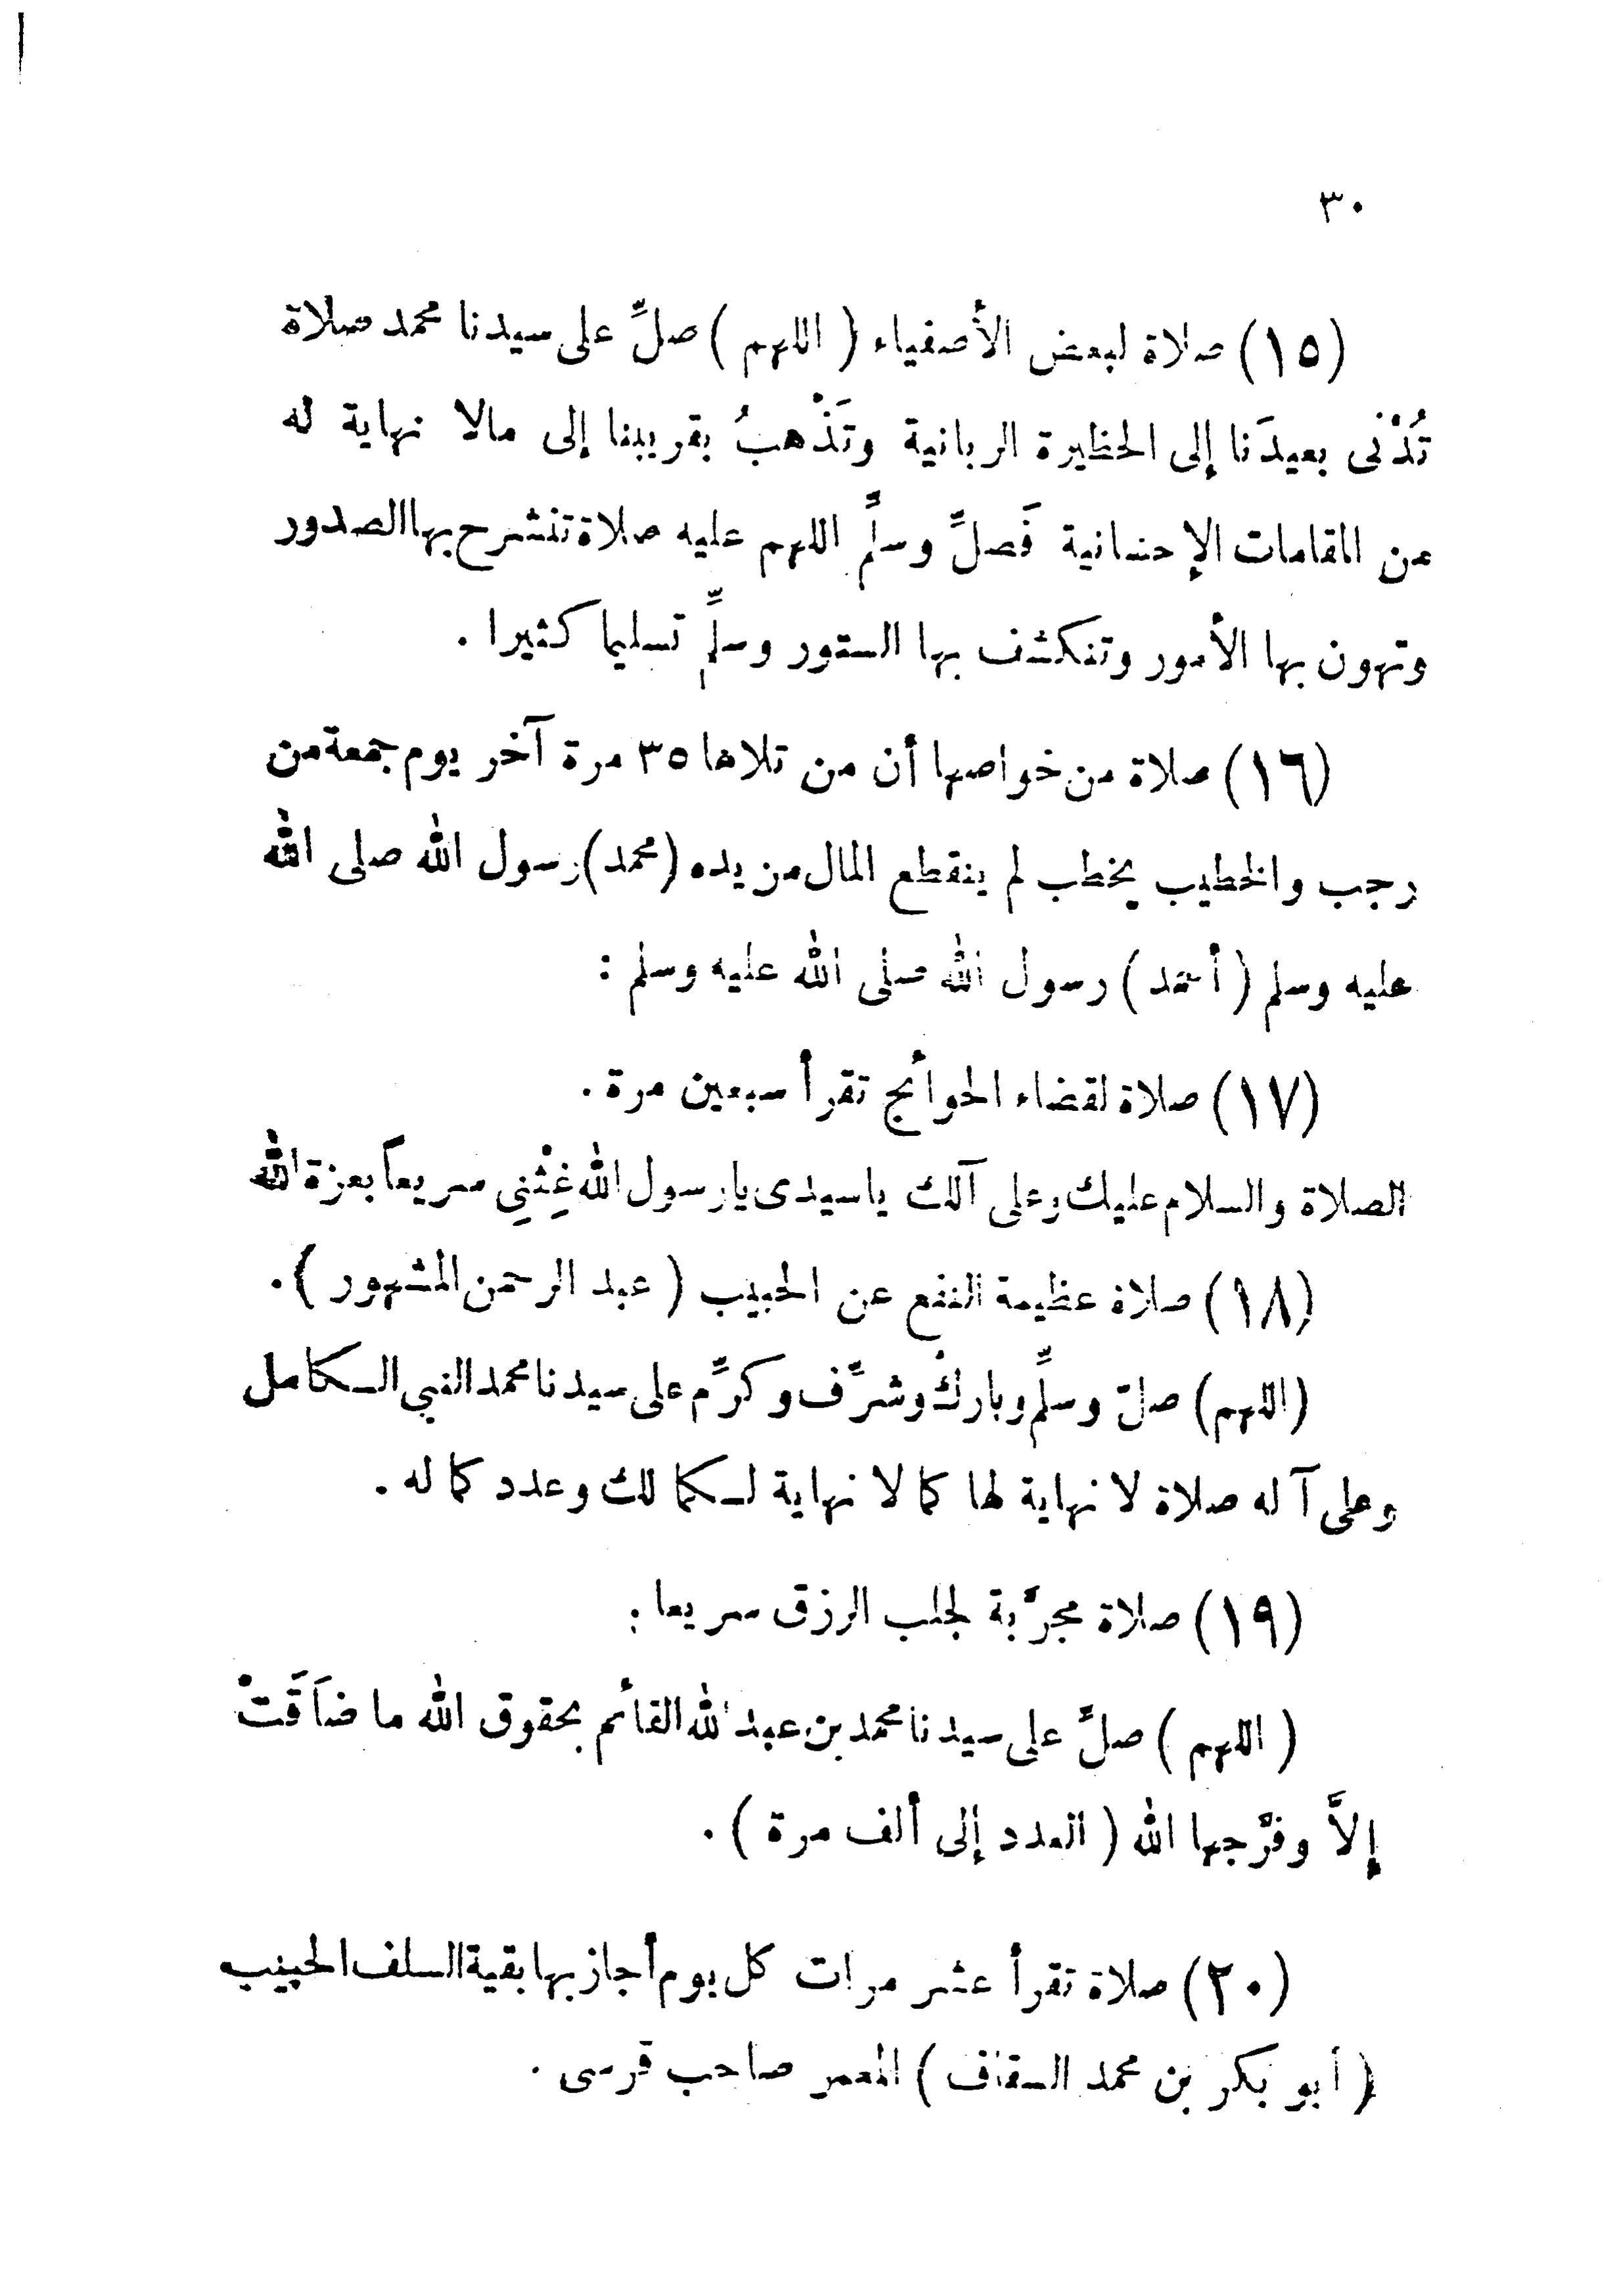 ٣٠
(١٥) صلاة لبعض الأصفياء ( اللهم ) صلِّ على سيدنا محمد صلاة
تُدْنى بعيدَنا إلى الحظيرة الربانية وتَذْهبُ بقريبنا إلى مالا نهاية له
من المقامات الإحسانية فَصلِّ وسلِّم اللهم عليه صلاة تنشرح بها الصدور
وتهون بها الأمور وتنكشف بها الستور وسلِّم تسليما كثيرا .
(١٦) صلاة من خواصها أن من تلاها ٣٥ مرة آخر يوم جمعة من
رجب والخطيب يخطب لم ينقطع المال من يده (محمد) رسول الله صلى الله
عليه وسلم ( أحمد ) رسول الله صلى الله عليه وسلم :
(١٧) صلاة لقضاء الحوأئج تقرأ سبعين مرة .
الصلاة والسلام عليك وعلى آلك ياسيدى يارسول الله غِثْنِي سريعاً بعزة الله
(١٨) صلاة عظيمة النفع عن الحبيب ( عبد الرحمن المشهور ) .
(اللهم) صلّ وسلِّم وباركْ وشرِّف وكرِّم على سيدنا محمد النبي الـكامل
وعلى آله صلاة لا نهاية لها كما لا نهاية لـكمالك وعدد كماله .
(١٩) صلاة مجرَّبة لجلب الرزق سريعا :
( اللهم ) صلِّ على سيدنا محمد بن عبد الله القائم بحقوق الله ما ضاَقَتْ
إلاَّ وفرَّجها الله ( العدد إلى ألف مرة ) .
(٢٠) صلاة تقرأ عشر مرات كل يوم أجاز بها بقية السلف الحبيب
( أبو بكر بن محمد السقاف ) المعمر صاحب قرسى .